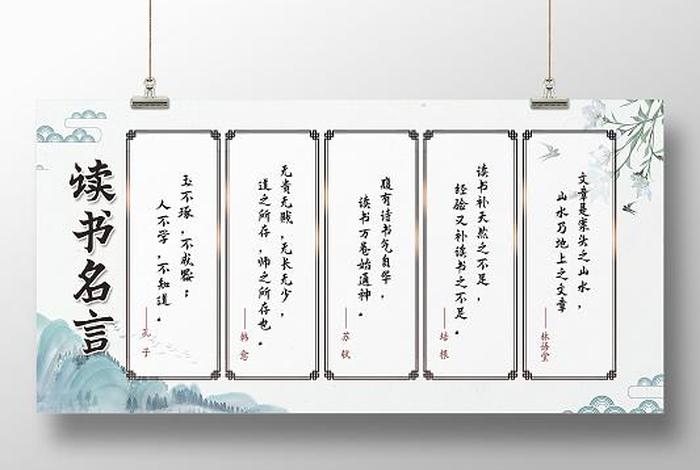 读书名言
玉不琢，不成器；
人不学，不知道。
——孔子
无贵无贱，无长无少，
道之所存，师之所存也。
——韩愈
腹有诗书气自华，
读书万卷始通神。
——苏轼
读书补天然之不足，
经验又补读书之不足。
——培根
文章是案头之山水，
山水乃地上之文章
——林语堂